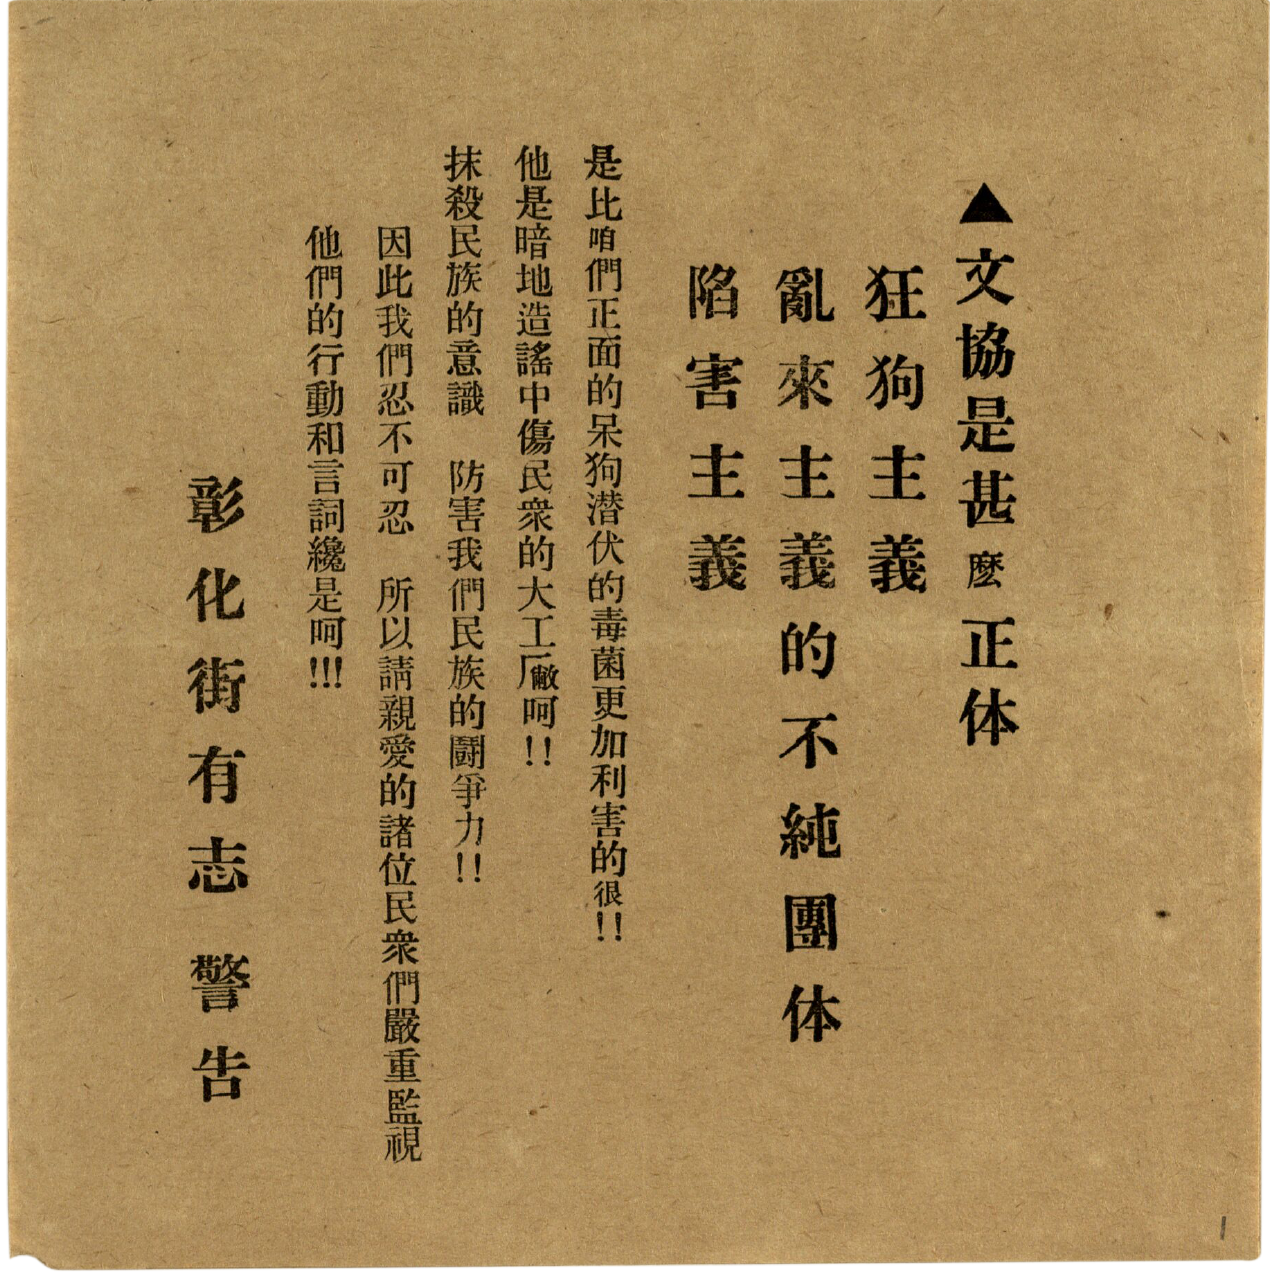 ▲文協是甚麽正体
狂狗主義
亂來主義的不純團体
陷害主義
是比咱們正面的呆狗潛伏的毒菌更加利害的很!!
他是暗地造謠中傷民衆的大工厰呵!!
抹殺民族的意識　防害我們民族的鬪爭力!!
因此我們忍不可忍　所以請親愛的諸位民衆們嚴重監視
他們的行動和言詞纔是呵!!!
彰化街有志　警告
1